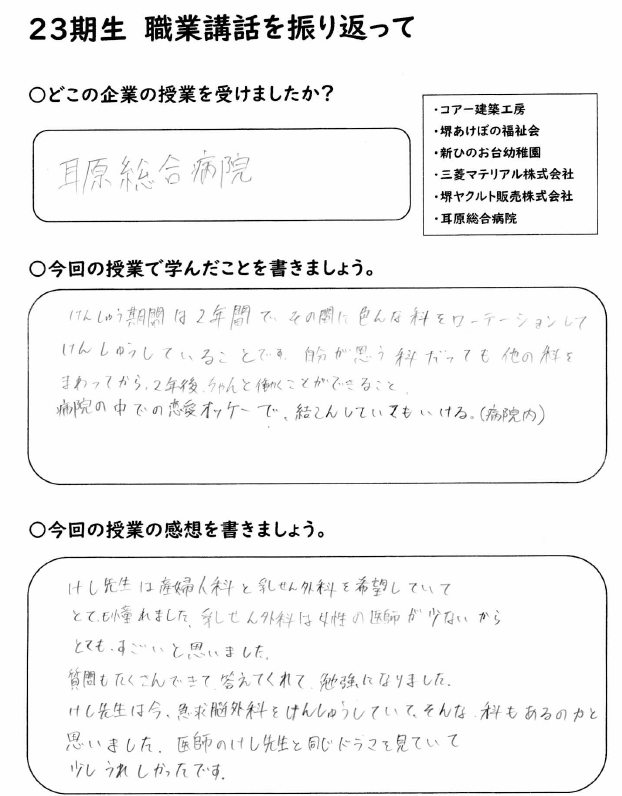 23期生 職業講話を振り返って
○どこの企業の授業を受けましたか?
・コアー建築工房
・堺あけぼの福祉会
・新ひのお台幼稚園
・三菱マテリアル株式会社
・堺ヤクルト販売株式会社
・耳原総合病院
耳原総合病院
○今回の授業で学んだことを書きましょう。
けんしゅう期間は2年間で、その間に色んな科をローテーションして
けんしゅうしていることです。自分が思う科だっても他の科を
まわってから、2年後、ちゃんと働くことができること、
病院の中での恋愛オッケーで、結こんしていてもいける。(病院内)
○今回の授業の感想を書きましょう。
けし先生は産婦人科と乳せん外科を希望していて
とても憧れました。乳せん外科は女性の医師が少ないから
とても、すごいと思いました。
質問もたくさんできて、答えてくれて、勉強になりました。
けし先生は今、急求脳外科をけんしゅうしていて、そんな科もあるのかと
思いました。医師のけし先生と同じドラマを見ていて
少しうれしかったです。